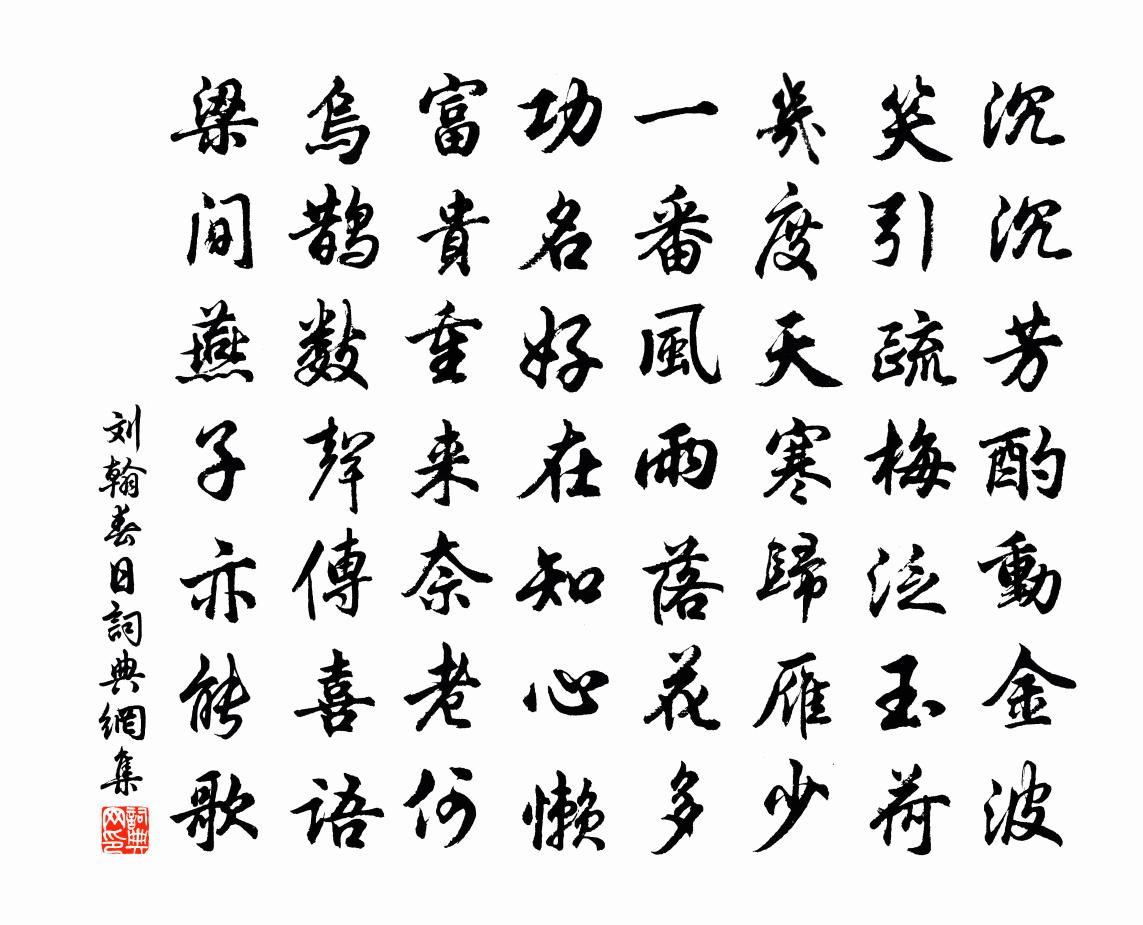 沉沉芳酌動金波
笑引疏梅泛玉荷
幾度天寒歸雁少
一番風雨落花多
功名好在知心懶
富貴重来奈老何
烏鵲數聲傳喜語
梁间燕子亦能歌
刘翰春日詞典網集
詞典网印